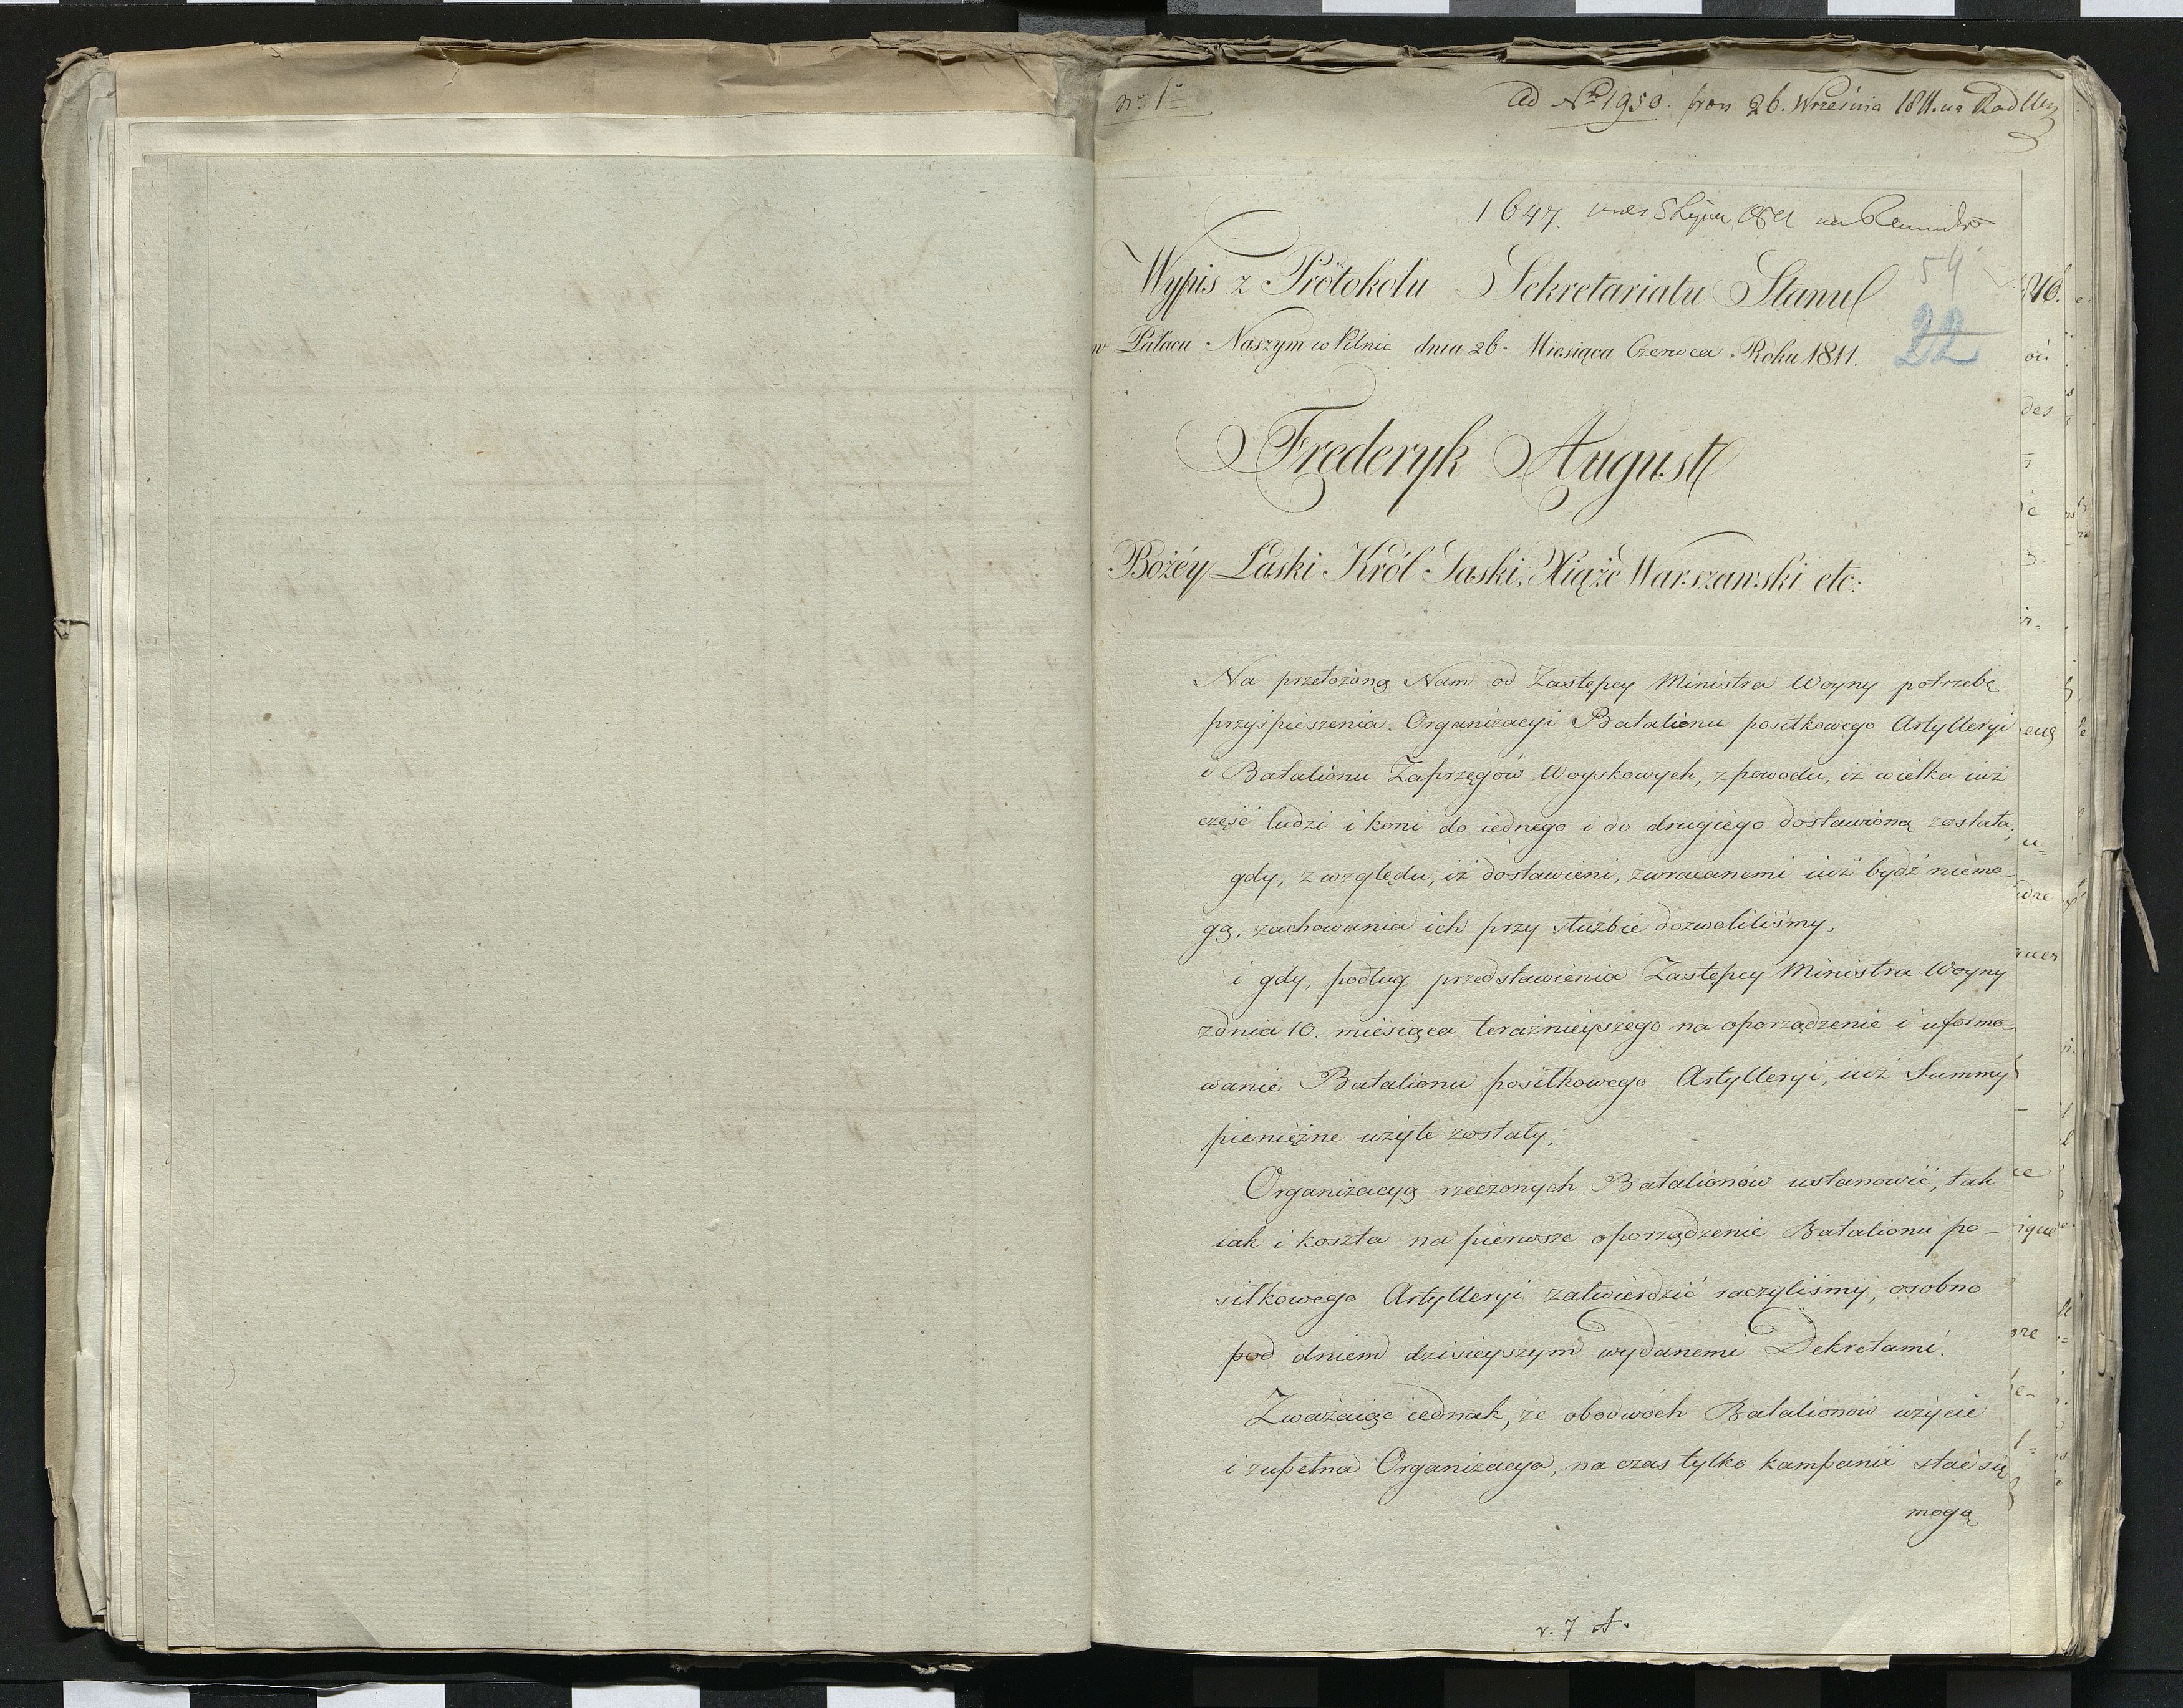 nº 1º
Ad Nº 1950. pron 26. Września 1811. na Rad Min
1647.
54
Wypis z Protokołu Sekretariatu Stanu
22
w Pałacu Naszym w Pilnic dnia 26. Miesiąca Czerwca Roku 1811.
Frederyk August
Bożéy Łaski Król Saski, Xiąże Warszawski etc:
Na przełożoną Nam od Zastępcy Ministra Woyny potrzebę
przyśpieszenia Organizacyi Batalionu posiłkowego Artylleryi
i Batalionu Zaprzęgów Woyskowych, z powodu, iż wielka iuż
część ludzi i koni do iednego i do drugiego dostawioną została;
gdy, z względu, iż dostawieni, zwracanemi iuż bydź niemo-
gą, zachowania ich przy służbie dozwoliliśmy,
i gdy, podług przedstawienia Zastępcy Ministra Woyny
z dnia 10. miesiąca teraźnieyszego na oporządzenie i uformo-
wanie Batalionu posiłkowego Artylleryi, iuż Summy
pieniężne użyte zostały;
Organizacyą rzeczonych Batalionów ustanowić, tak
iak i koszta na pierwsze oporządzenie Batalionu po-
siłkowego Artylleryi zatwierdzić raczyliśmy, osobno
pod dniem dzisieyszym wydanemi Dekretami.
Zważaiąc iednak, że obodwóch Batalionów użycie
i zupełna Organizacya, na czas tylko kampanii stać się
mogą
v. 7 A.